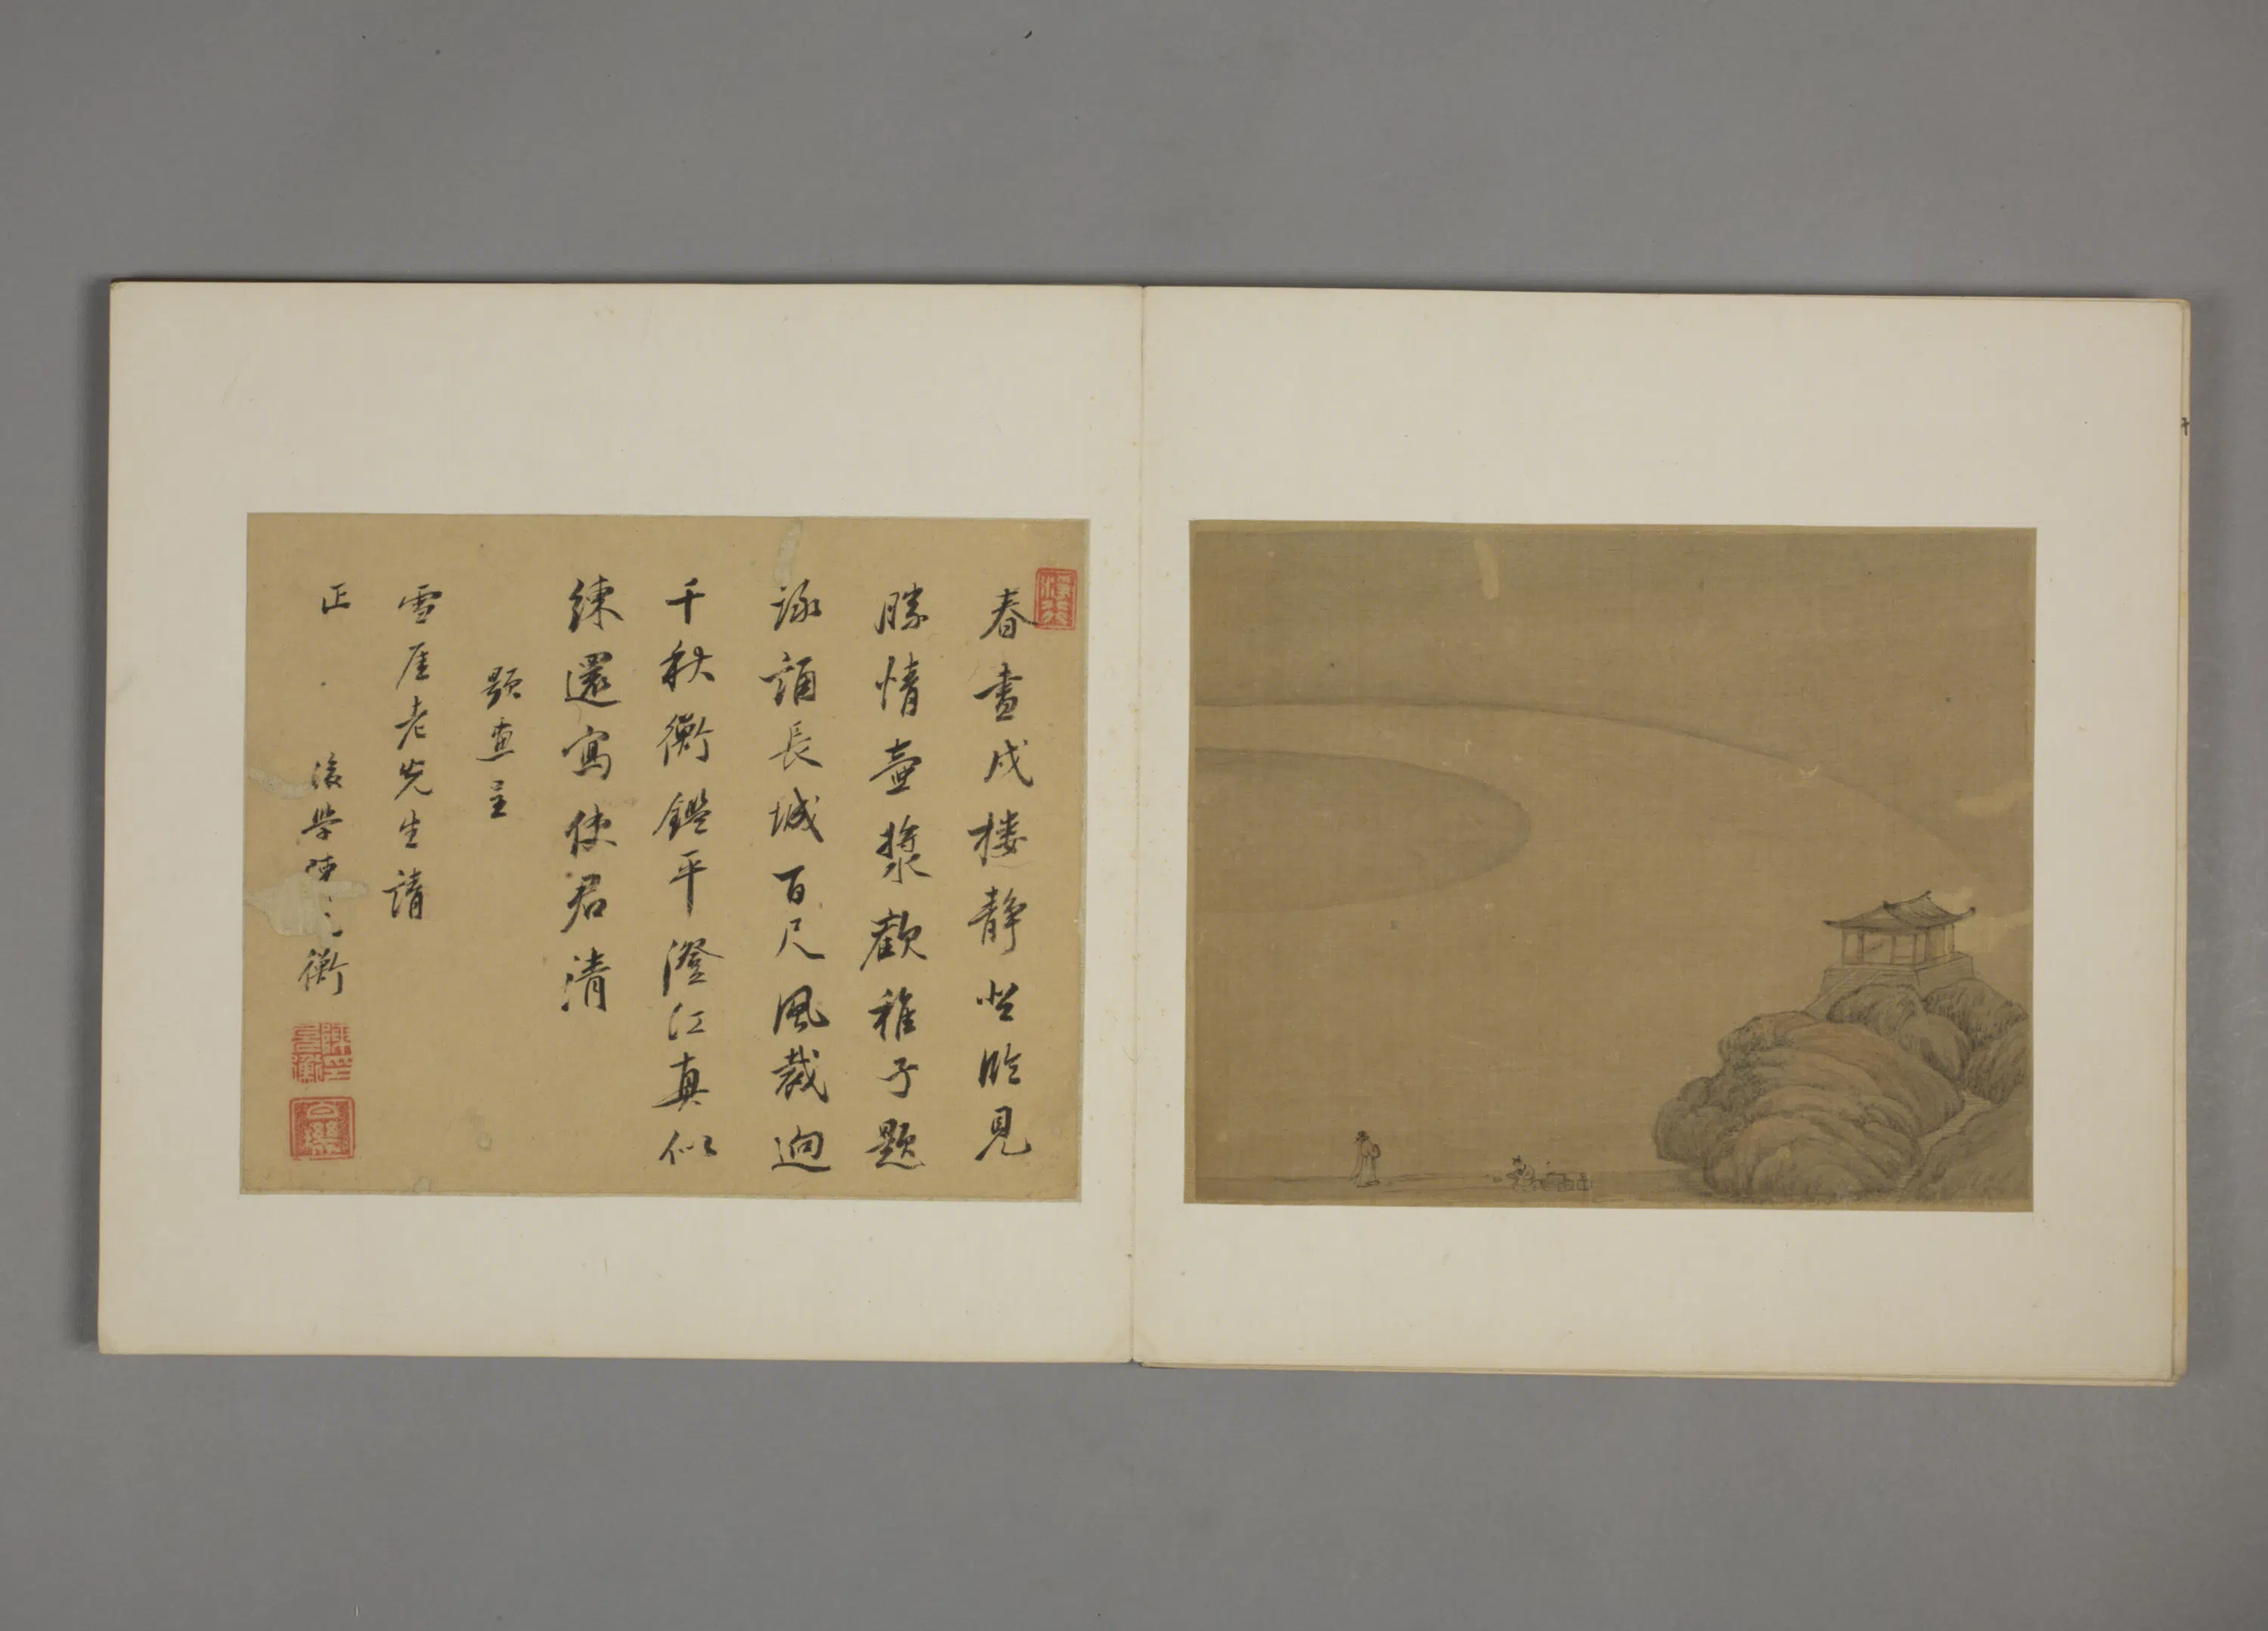 春晝戍樓靜坐臨見
勝情壺漿歡稚子題
詠誦長城百尺風裁迥
千秋衡鑑平澄江真似
練還寫使君清
題畫呈
雪厓老先生請
正
後學陳 衡